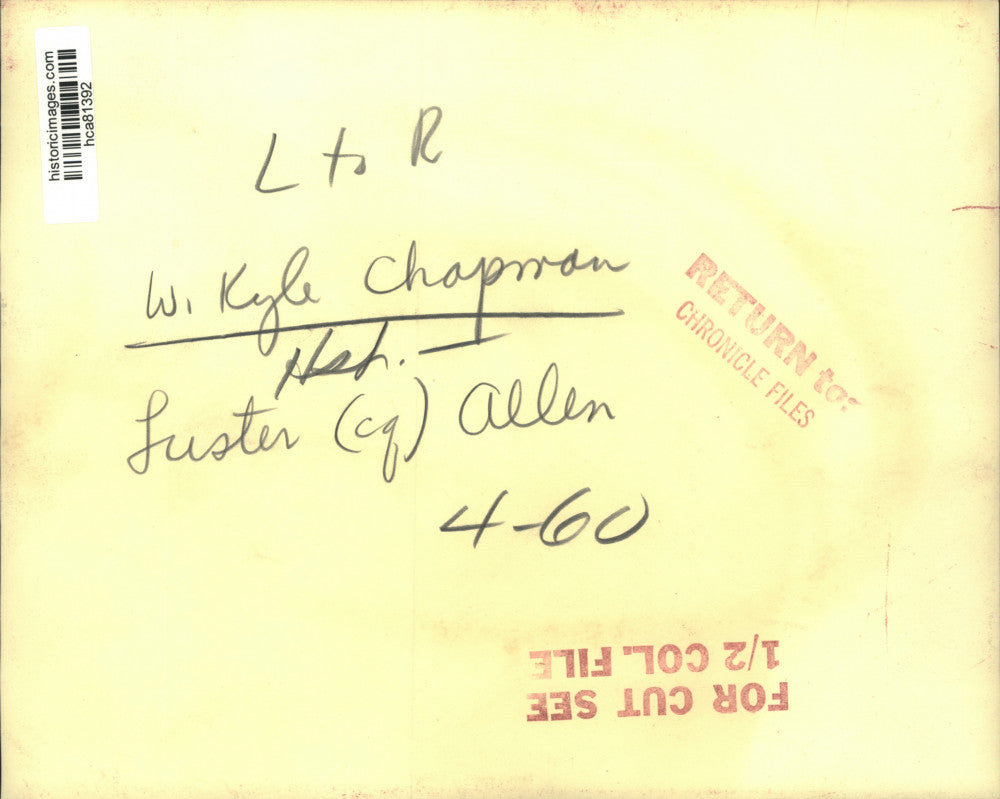 historicimages.com
hca81392
L to R
W. Kyle Chapman
Hsh.
Luster (cq) Allen
4-60
RETURN to:
CHRONICLE FILES
FOR CUT SEE
1/2 COL. FILE